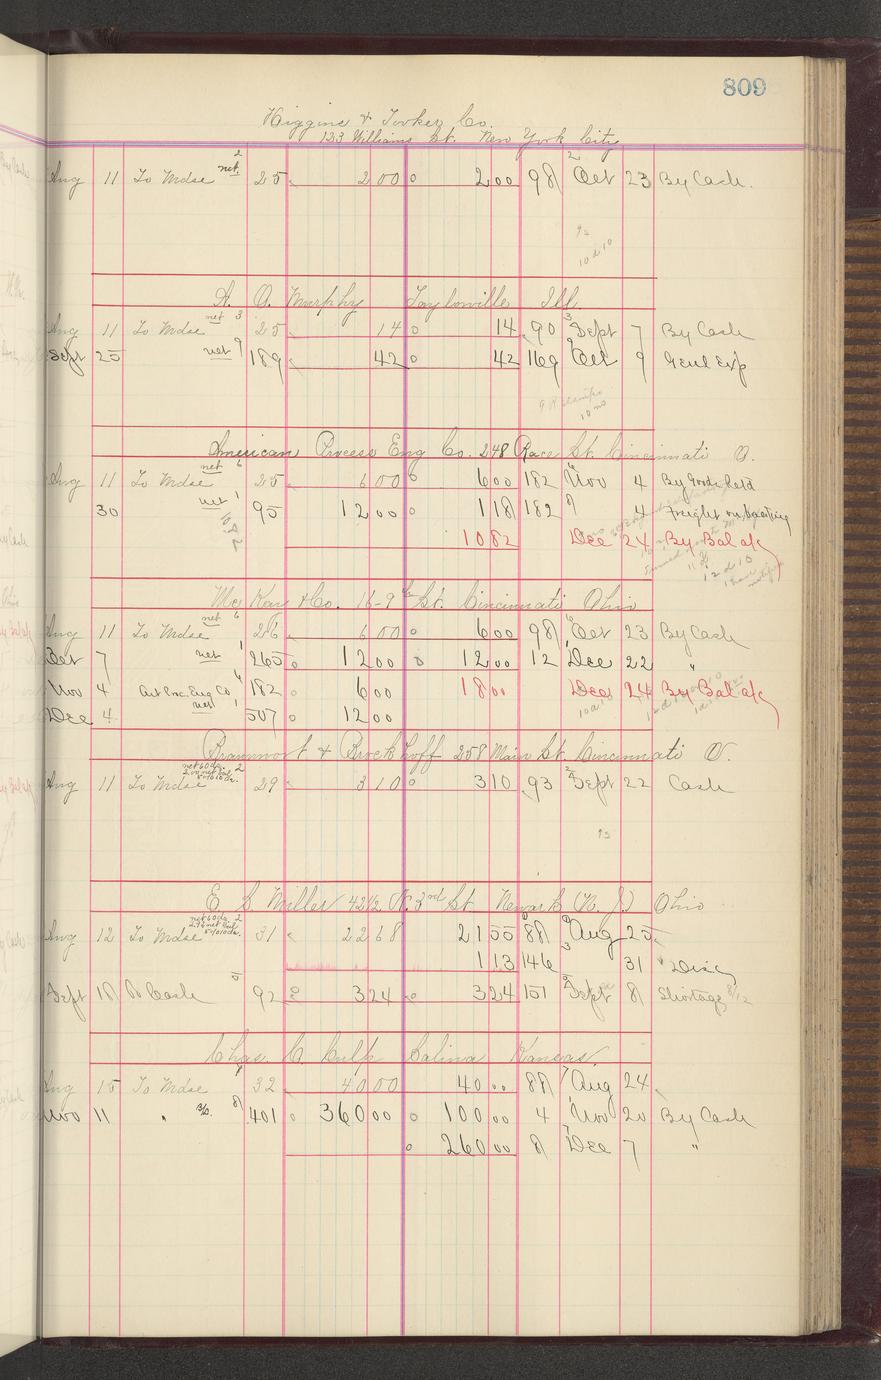 809
Higgins & Tooker Co.
123 Williams St. New York City
Aug 11 To Mdse net 2 25 2 00 2 00 98 2 Oct 23 By Cash.
10 d 10
A. O. Murphy Taylorville Ill
Aug 11 To Mdse net 3 25 14 14 90 3 Sept 7 By Cash
Sept 25 net 9 189 42 42 169 9 Oct 9 Genl Exp
American Process Eng Co. 248 Race St. Cincinnati O.
Aug 11 To Mdse net 6 25 6 00 6 00 182 6 Nov 4 By Goods Retd
30 net 1 95 12 00 1 18 182 8 4 Freight on
10 82 Dec 24 By Bal a/c
12 d 10
Mc Kay & Co. 16-9th St. Cincinnati Ohio
Aug 11 To Mdse net 6 26 6 00 6 00 98 6 Oct 23 By Cash
Oct 7 net 1 265 12 00 12 00 12 1 Dec 22 "
Nov 4 Am Proc Eng Co 4 182 6 00 18 00 Dec 24 By Bal a/c
Dec 4 net 1 507 12 00
& Brockhoff 258 Main St. Cincinnati O.
net 60 ds. 2
Aug 11 To Mdse 29 3 10 3 10 93 2 Sept 22 Cash
E S Miller 42 1/2 N. 3rd St Newark (N. J) Ohio
net 60 ds. 2
Aug 12 To Mdse 31 22 68 21 55 88 Aug 25
1 13 146 3 31 " Disc
Sept 18 To Cash 5 92 3 24 3 24 151 5 Sept 8 Shortage 8/12
Chas. C. Culp Salina Kansas
Aug 15 To Mdse 32 40 00 40 00 88 7 Aug 24
Nov 11 " 8 401 360 00 100 00 4 Nov 20 By Cash
260 00 8 Dec 7 "